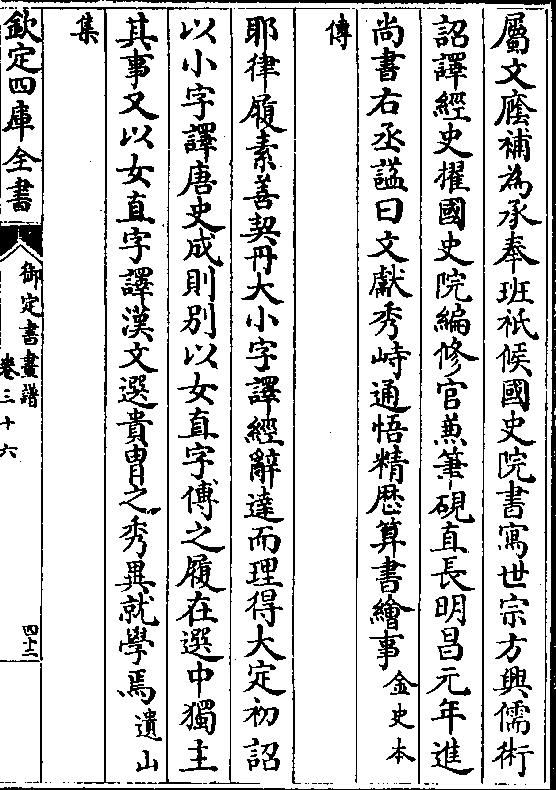 屬文廕補為承奉班祗候國史院書寫世宗方興儒術
詔譯經史擢國史院編修官兼筆硯直長明昌元年進
尚書右丞謚曰文獻秀峙通悟精厯算書繪事金史本
傳
耶律履素善契丹大小字譯經辭達而理得大定初詔
以小字譯唐史成則別以女直字傳之履在選中獨主
其事又以女直字譯漢文選貴胄之秀異就學焉遺山
集
欽定四庫全書
御定書畫譜
卷三十六
四十二